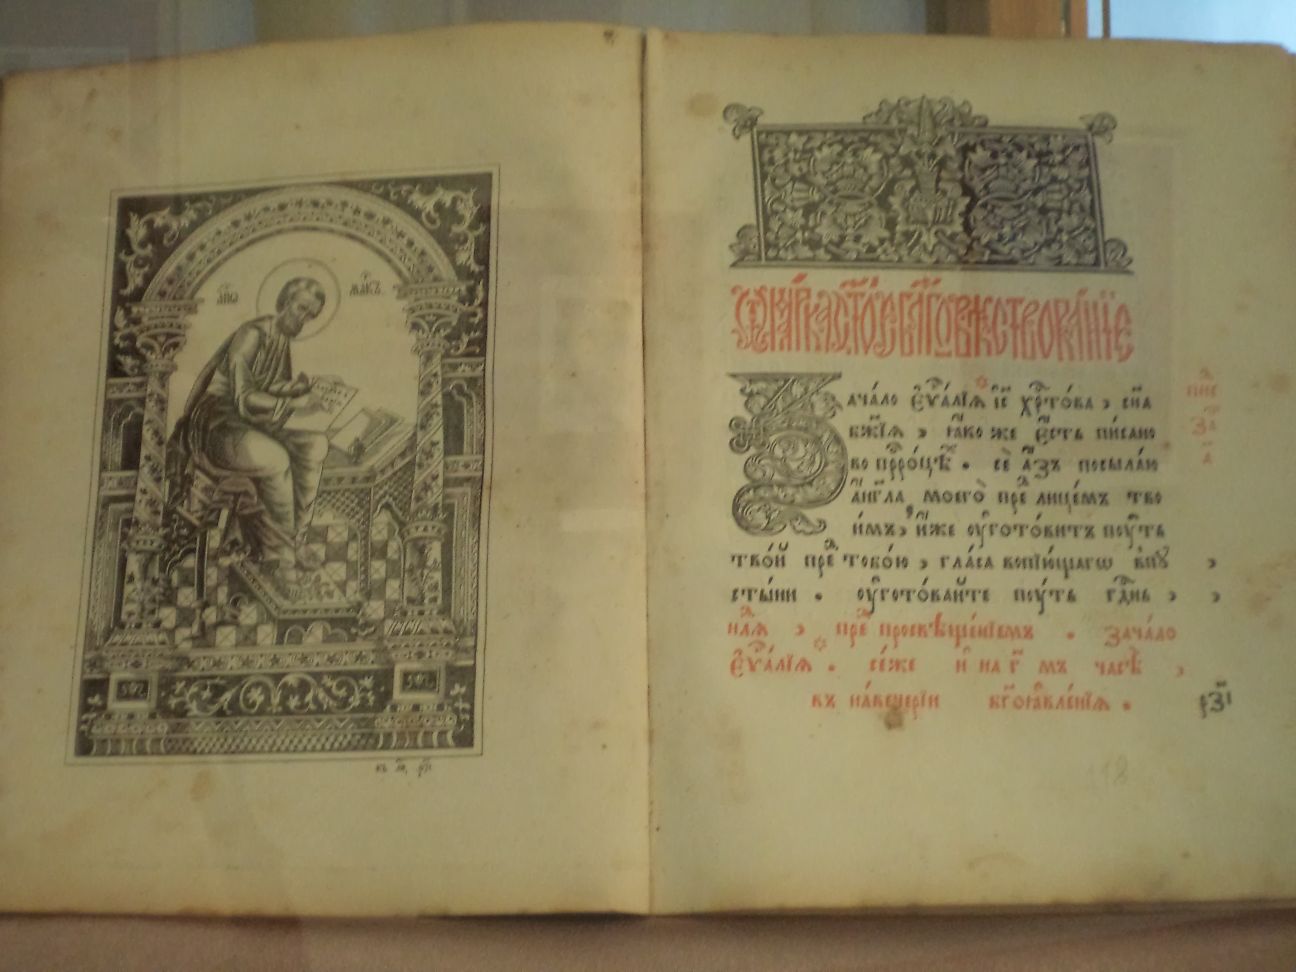 а҆пⷭ҇о ма́ркъ
къ лⷭ҇, рз҃і
Ѿ ма́рка ст҃ое бл҃говѣствова́нїе
Зача́ло є҆ѵⷢ҇а́лїѧ і҆с҃ хрⷭ҇то́ва , сн҃а
бж҃їѧ , ꙗ҆́коже є҆́сть пи́сано
во прⷪ҇ро́цѣхъ . сѐ а҆́зъ посыла́ю
а҆́нг҃ла моего̀ преⷣ лице́мъ тво
и́мъ , и҆́же ᲂу҆гото́витъ пᲂу́ть
тво́й преⷣ тобо́ю , гла́са вопїю́щагѡ въ пꙋ
сты́ни . ᲂу҆гото́вайте пᲂу́ть гдⷭ҇нь ,
нлⷧ҇ѧ , преⷣ просвѣще́нїемъ . зача́ло
є҆ѵⷢ҇а́лїѧ . є҆́же и҆ на г҃ мъ часѣ̀ ,
въ наве́черїи бг҃оꙗвле́нїѧ .
рз҃і
18